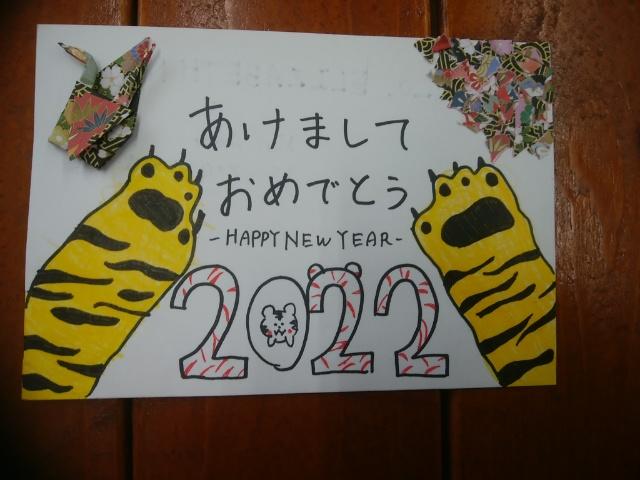 あけまして
おめでとう
-HAPPY NEW YEAR-
2022